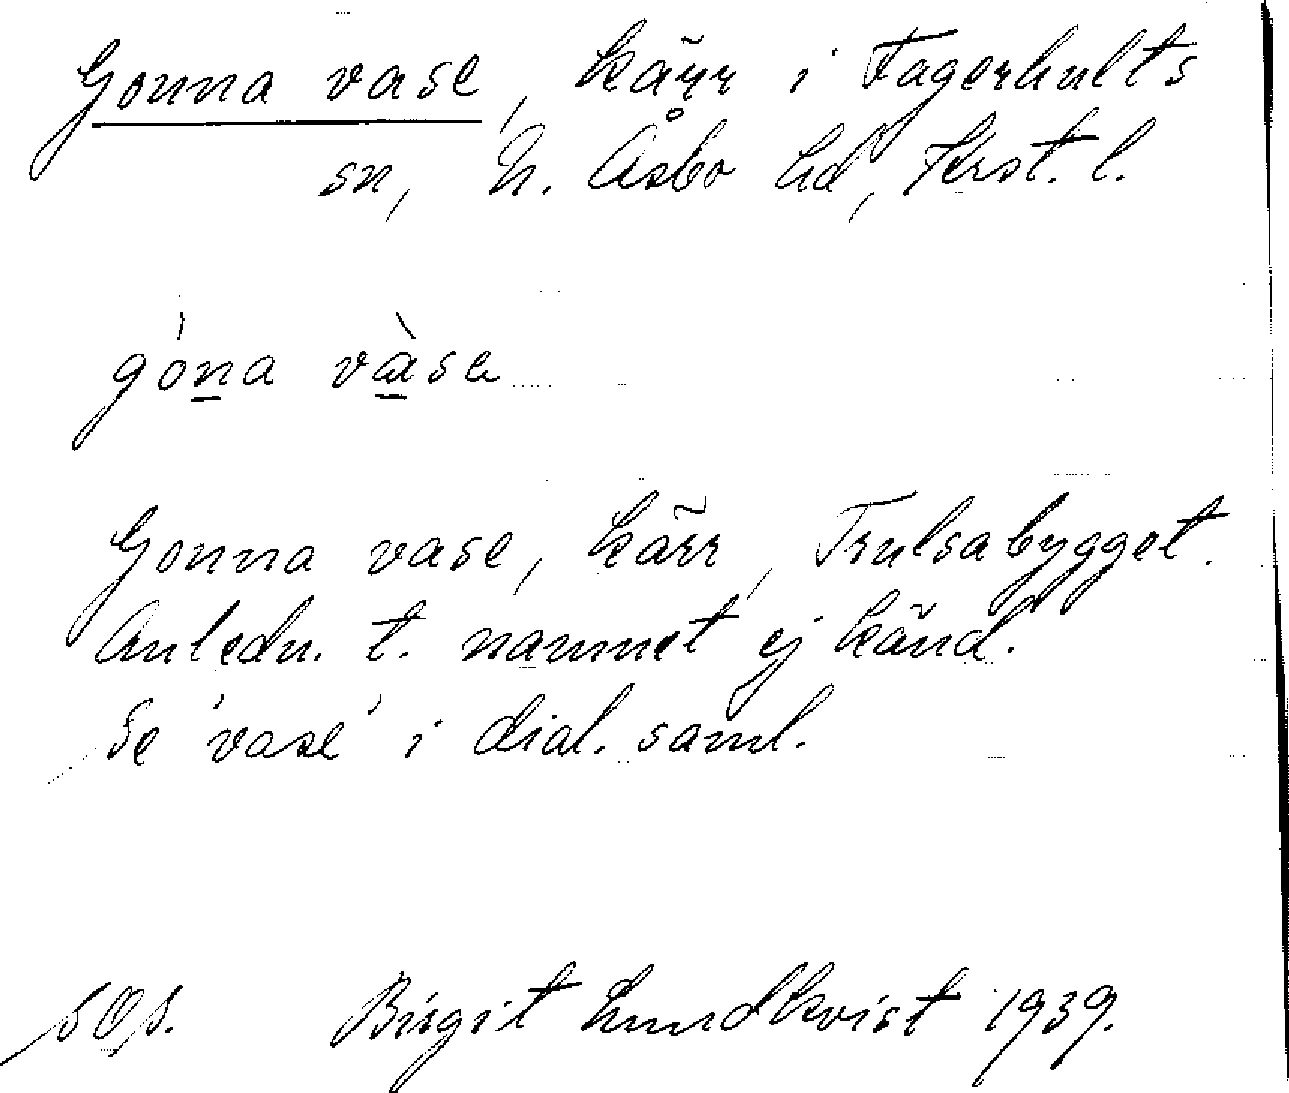 Gonna vase, kärr i Fagerhults
sn, N. Åsbo hd, Krist. l.
góna vàsa
Gonna vase, kärr, Trulsabygget.
Anledn. t. namnet ej känd.
Se 'vase' i dial. saml.
Birgit Lundkvist 1939.